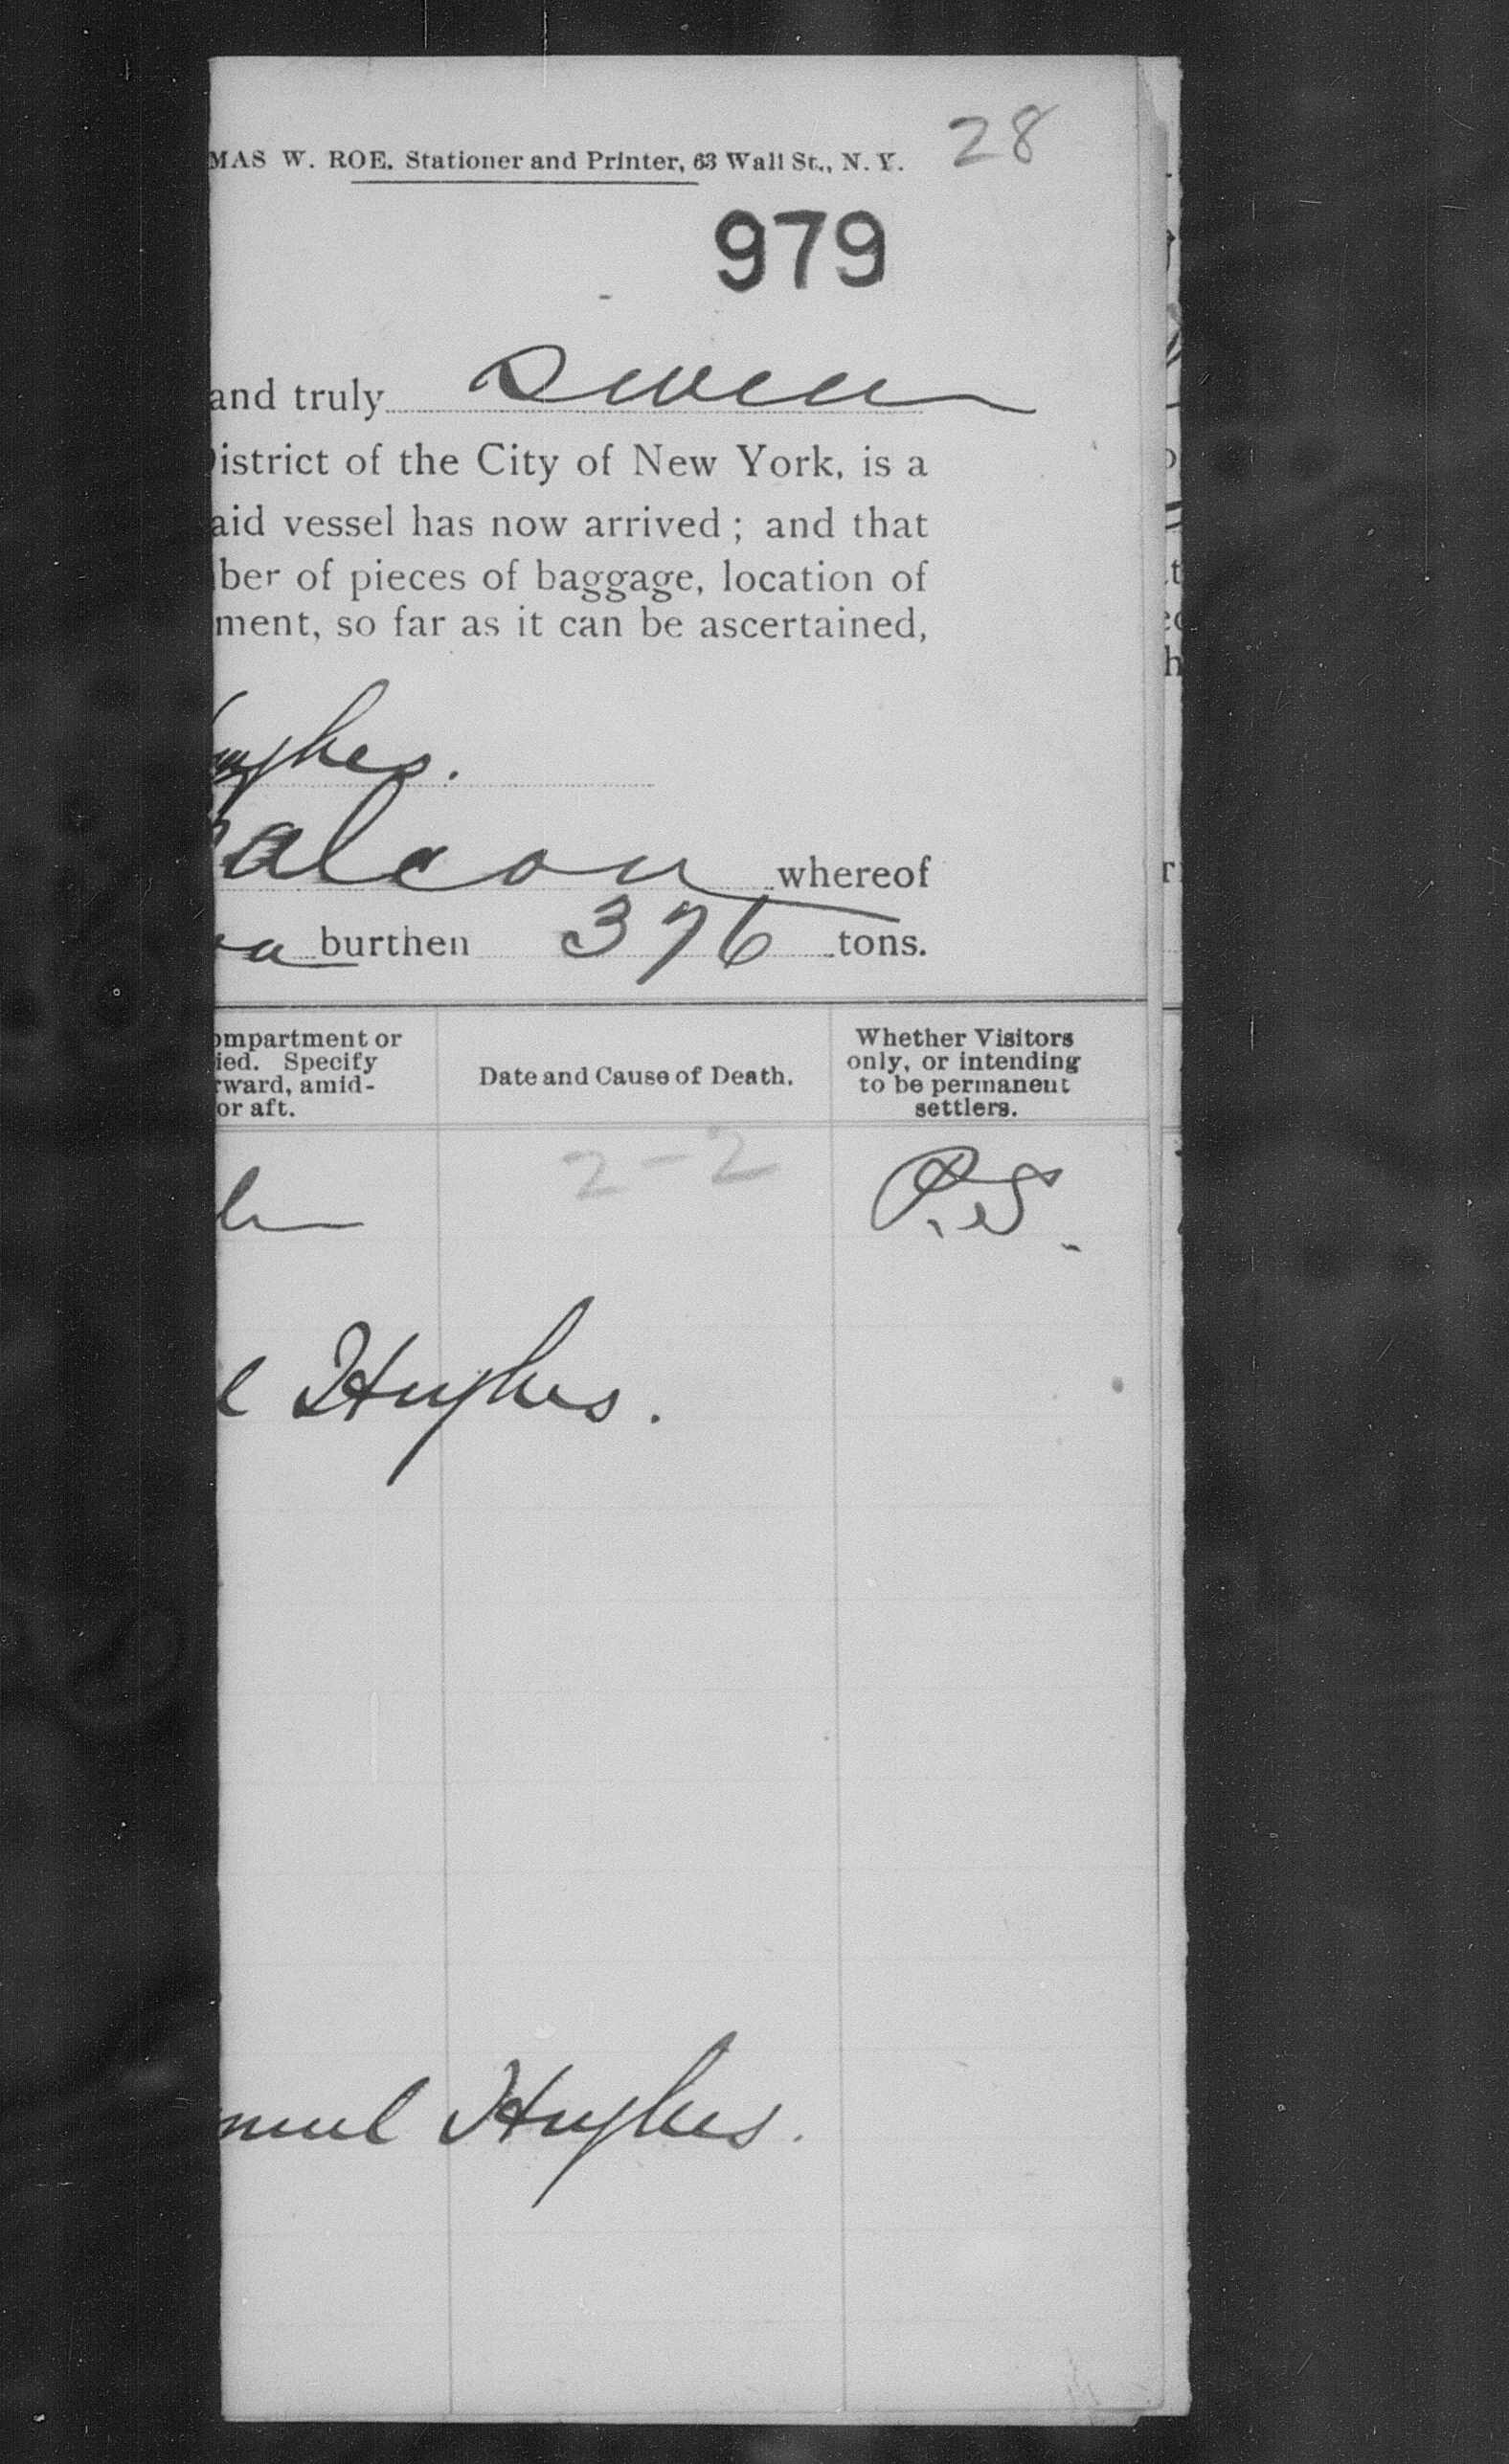 28
MAS W. ROE, Stationer and Printer, 63 Wall St., N. Y.
979
and truly Swear
istrict of the City of New York, is a
aid vessel has now arrived ; and that
ber of pieces of baggage, location of
ment, so far as it can be ascertained,
ughes.
alcon whereof
a burthen 376 tons.
ompartment or
ied. Specify
rward, amid-
or aft.
Date and Cause of Death.
Whether Visitors
only, or intending
to be permanent
settlers.
2-2
P.S.
l Hughes.
muel Hughes.